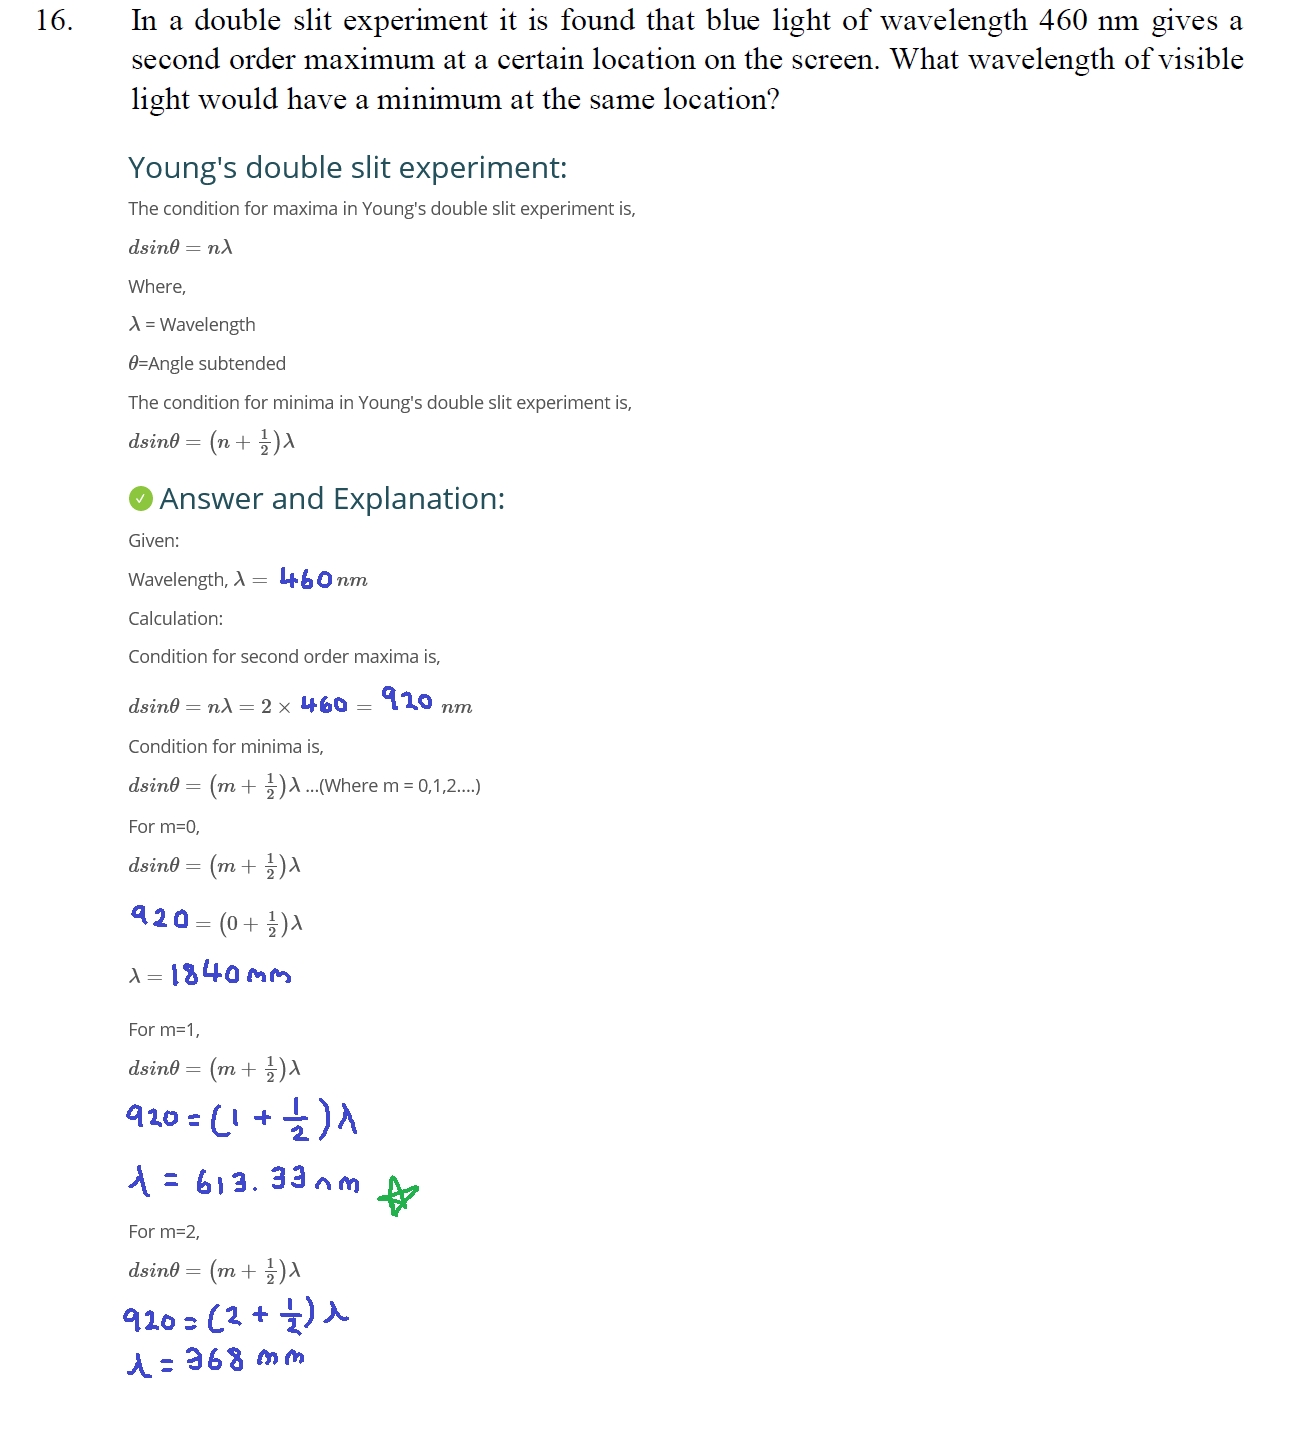 16. In a double slit experiment it is found that blue light of wavelength 460 nm gives a
second order maximum at a certain location on the screen. What wavelength of visible
light would have a minimum at the same location?
Young's double slit experiment:
The condition for maxima in Young's double slit experiment is,
dsinθ = nλ
Where,
λ = Wavelength
θ=Angle subtended
The condition for minima in Young's double slit experiment is,
dsinθ = (n + 1/2)λ
✓ Answer and Explanation:
Given:
Wavelength, λ = 460 nm
Calculation:
Condition for second order maxima is,
dsinθ = nλ = 2 × 460 = 920 nm
Condition for minima is,
dsinθ = (m + 1/2)λ ...(Where m = 0,1,2....)
For m=0,
dsinθ = (m + 1/2)λ
920 = (0 + 1/2)λ
λ = 1840 nm
For m=1,
dsinθ = (m + 1/2)λ
920 = (1 + 1/2)λ
λ = 613.33 nm
For m=2,
dsinθ = (m + 1/2)λ
920 = (2 + 1/2)λ
λ = 368 nm